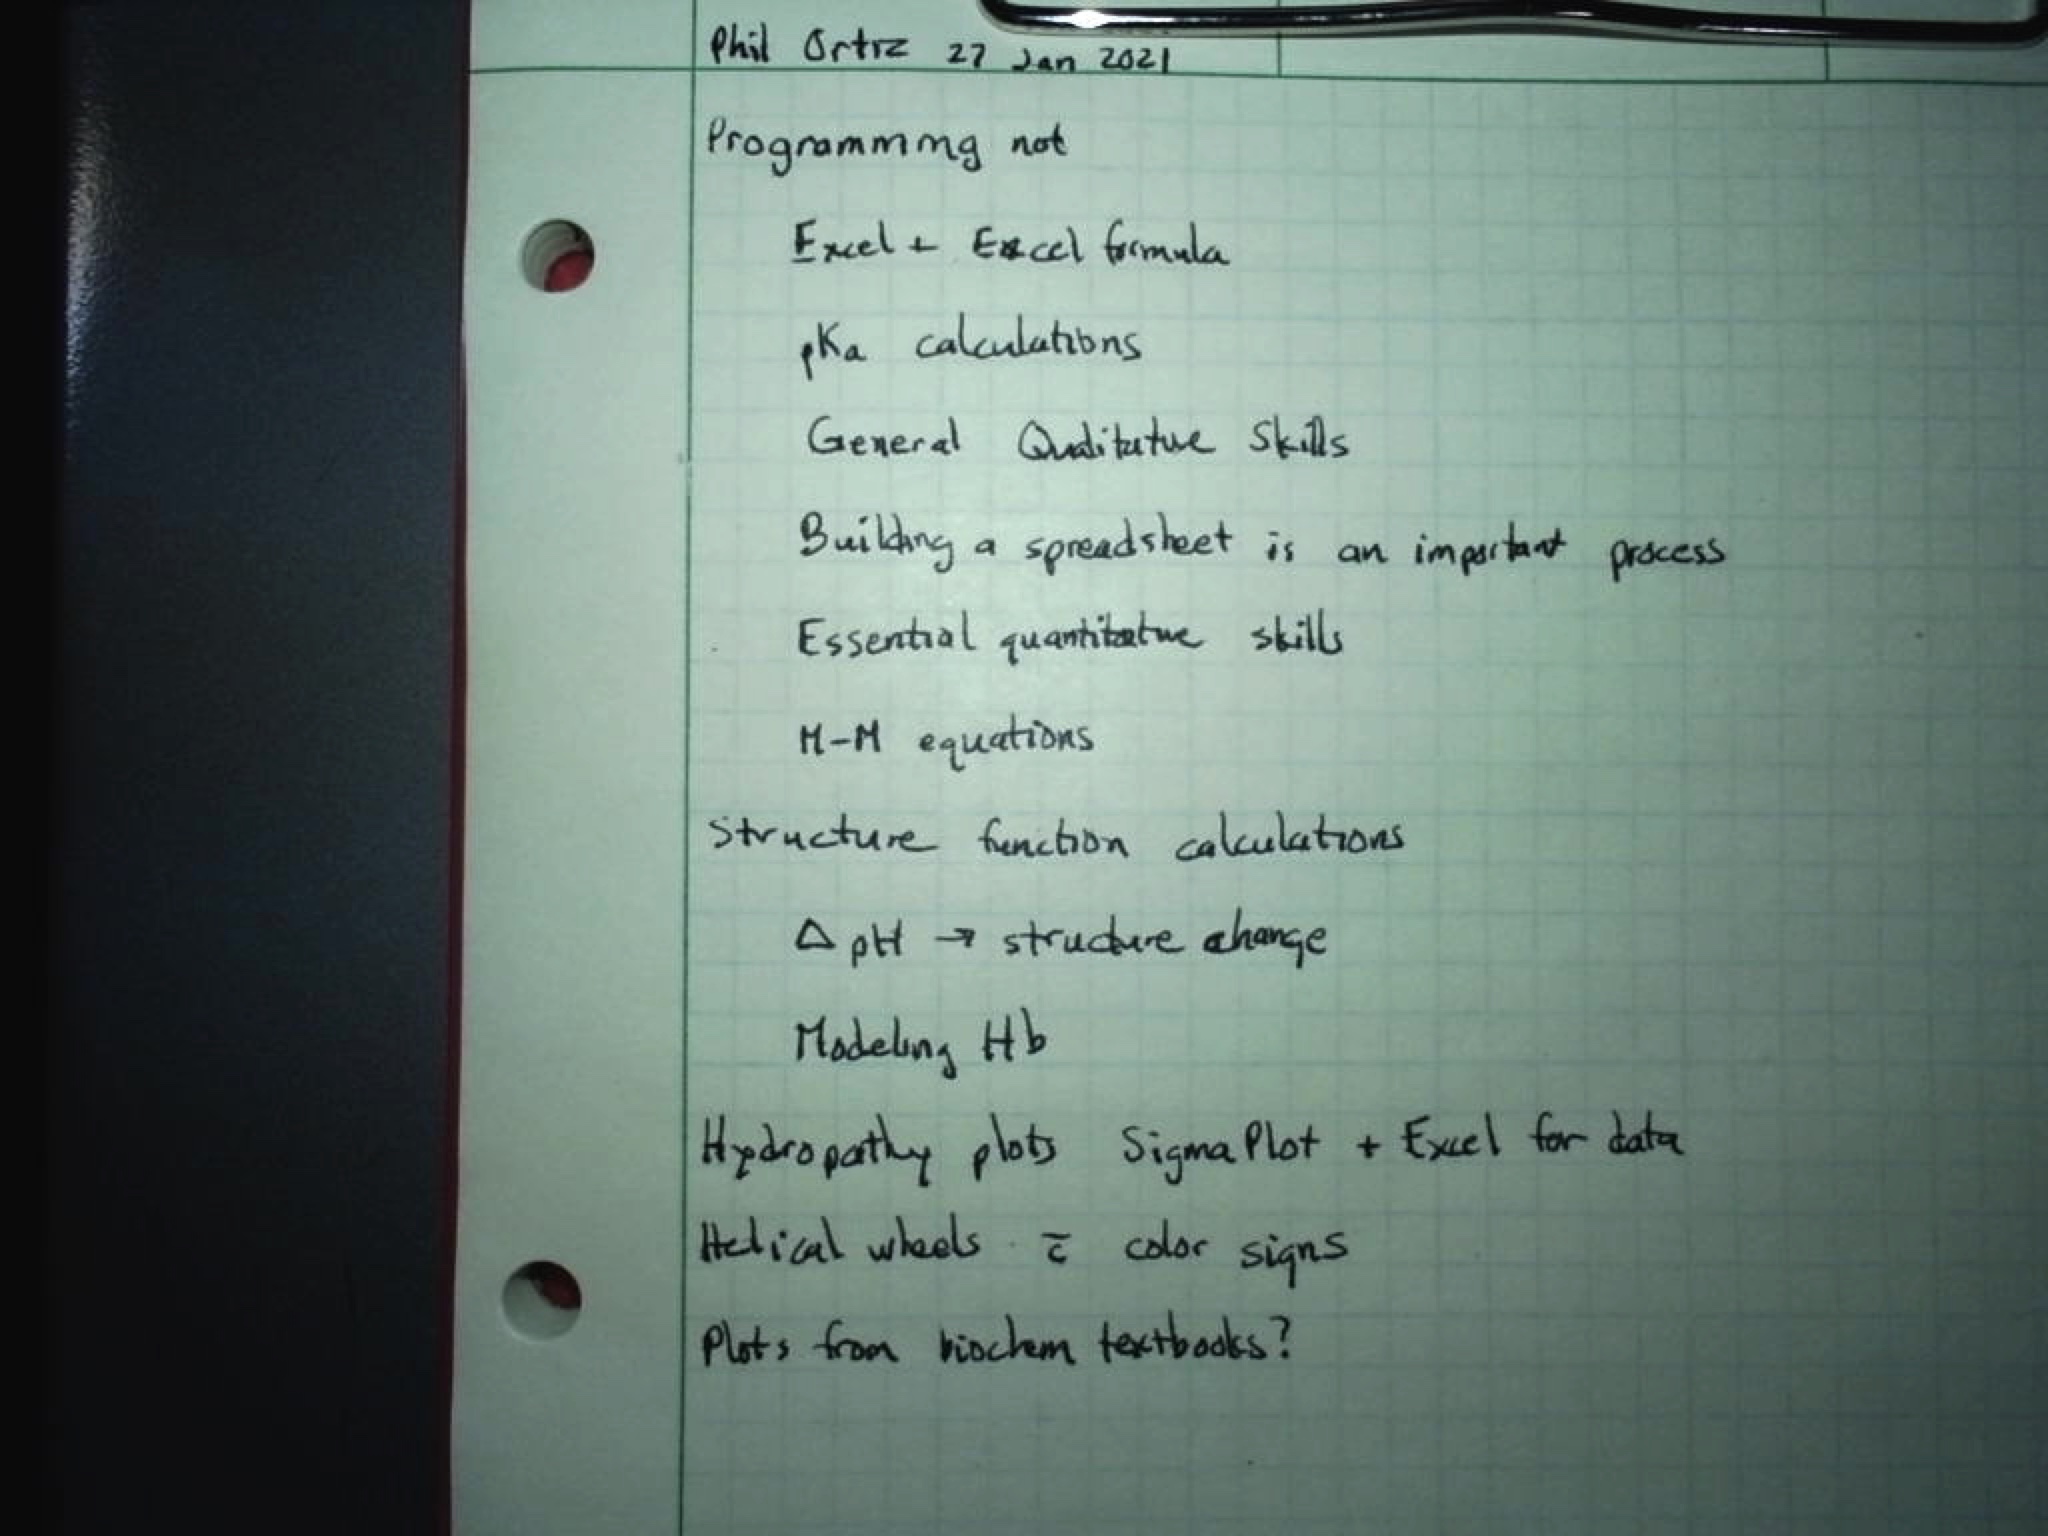 Phil Ortiz 27 Jan 2021
Programming not
Excel + Excel formula
pKa calculations
General Qualitative Skills
Building a spreadsheet is an important process
Essential quantitative skills
M-M equations
Structure function calculations
Δ pH → structure change
Modeling Hb
Hydropathy plots SigmaPlot + Excel for data
Helical wheels c̄ color signs
Plots from biochem textbooks?